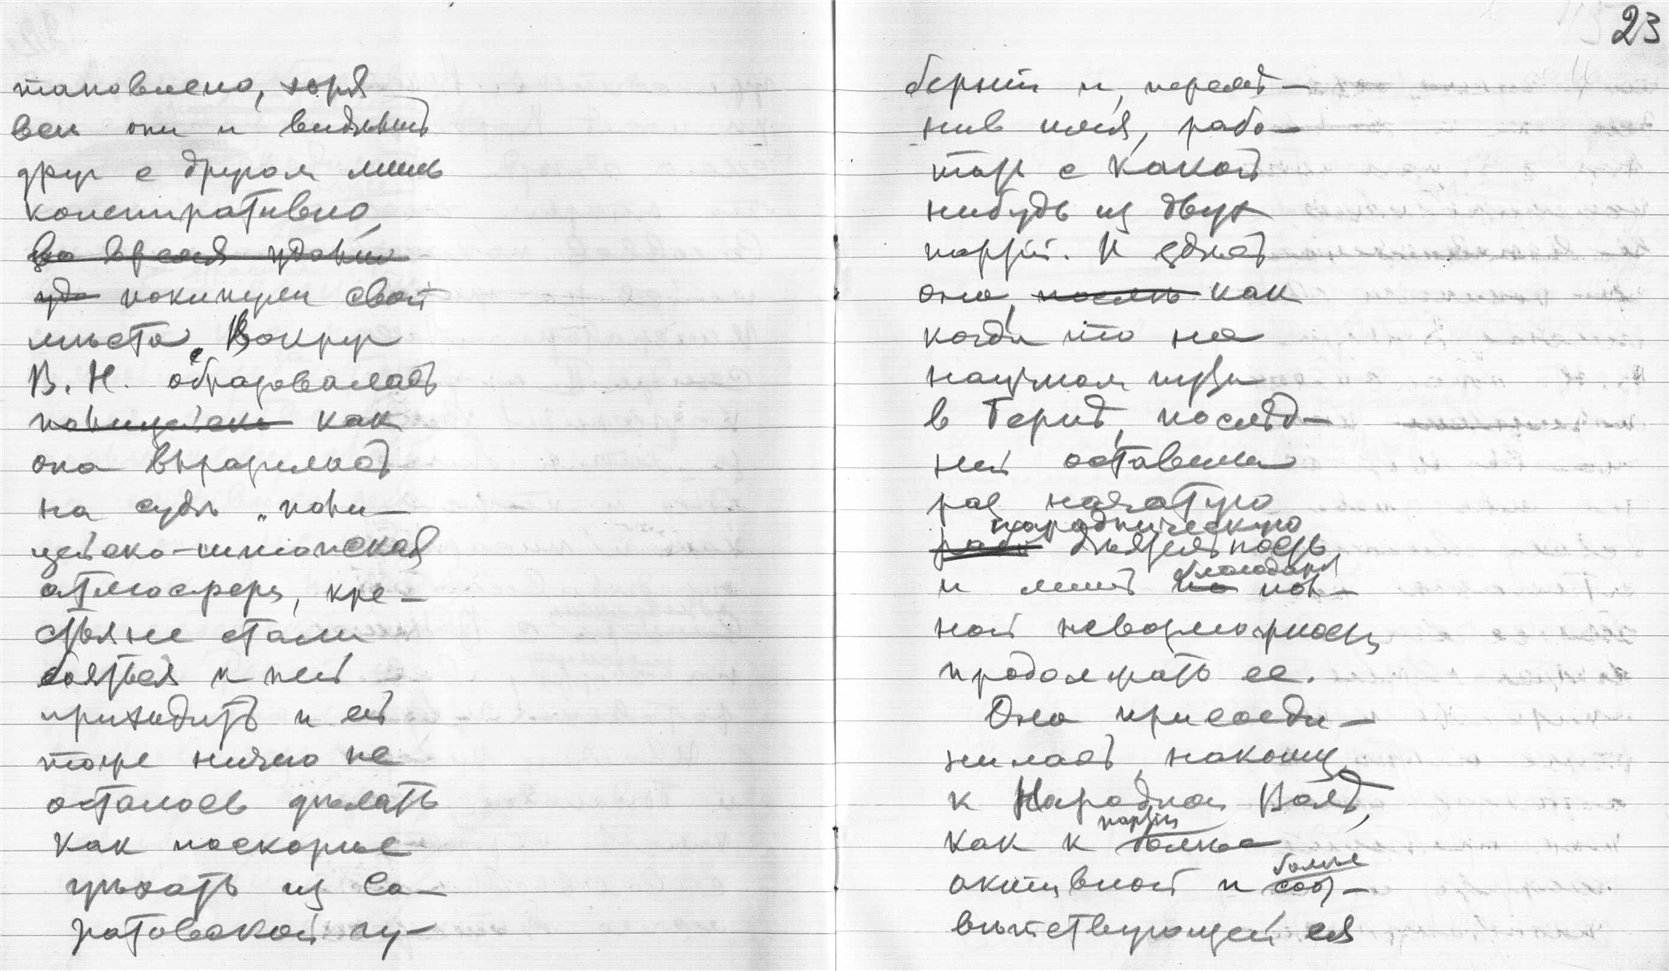 тановлено, хотя
все они и виделись
друг с другом лишь
конспиративно,
во время
покинули свои
места. Вокруг
В. Н. образовалась
полицейско как
она выразилась
на суде „поли-
цейско-шпионская
атмосфера, кре-
стьяне стали
бояться к ней
приходить и ей
тоже ничего не
осталось делать
как поскорее
уехать из Са-
ратовской гу-
23
бернии и, переме-
нив имя, рабо-
тать с какой
нибудь из двух
партий. И здесь
она, как
когда то на
научном пути
в Берне, послед-
ней оставила
раз начатую
народническую
деятельность
и лишь благодаря пол-
ной невозможности
продолжать ее.
Она присоеди-
нилась, наконец,
к Народной Воле,
партии
как к более
более
активной и соо-
ветствующей ея